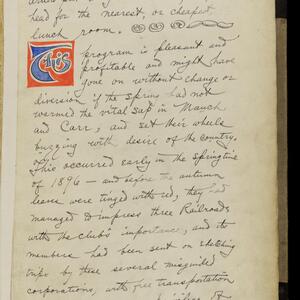 head for the nearest, or cheapest
lunch room.
This program is pleasant and
profitable and might have
gone on without change or
diversion if the Spring had not
warmed the vital sap in Mauch
and Carr, and set their wheels
buzzing with desire of the country.
This occurred early in the springtime
of 1896 — and before the autumn
leaves were tinged with red, they had
managed to impress three Railroads
with the club's importance, and its
members had been sent on sketching
trips by these several misguided
corporations, with free transportation